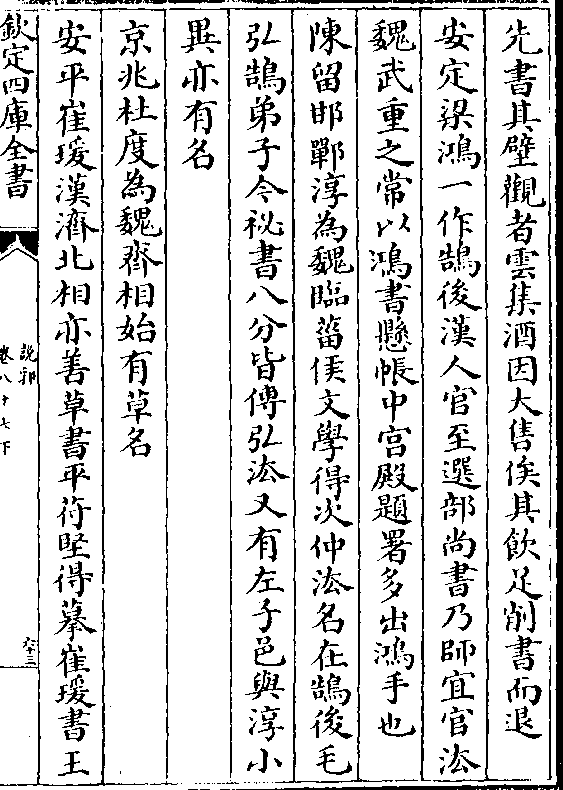 先書其壁觀者雲集酒因大售俟其飲足削書而退
安定梁鴻一作鵠後漢人官至選部尚書乃師宜官法
魏武重之常以鴻書懸帳中宫殿題署多出鴻手也
陳留邯鄲淳為魏臨菑侯文學得次仲法名在鵠後毛
弘鵠弟子今祕書八分皆傳弘法又有左子邑與淳小
異亦有名
京兆杜度為魏齊相始有草名
安平崔瑗漢濟北相亦善草書平苻堅得摹崔瑗書王
欽定四庫全書
說郛
卷八十七下
六十三